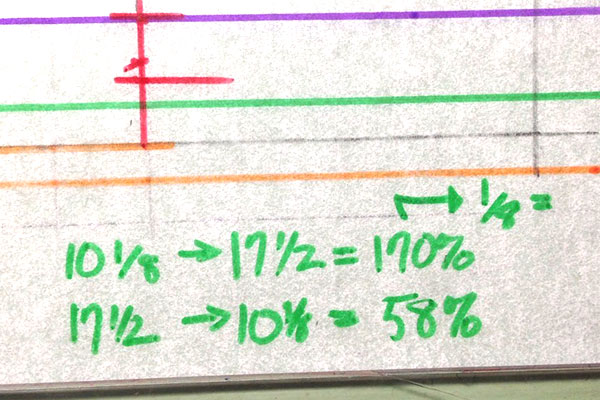 1/8 =
10 1/8 → 17 1/2 = 170%
17 1/2 → 10 1/8 = 58%